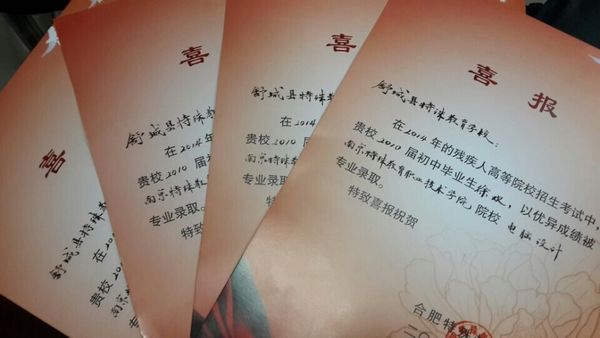 喜
舒城县特殊
在20
贵校20
南京特
专业
喜
舒城县特殊教
在2014年
贵校2010届
南京特殊教
专业录取。
特致喜
喜
舒城县特殊
在2014
贵校2010届
南京特殊教
专业录取。
特致
喜报
舒城县特殊教育学校：
在2014年的残疾人高等院校招生考试中，
贵校2010届初中毕业生徐，以优异成绩被
南京特殊教育职业技术学院院校电脑设计
专业录取。
特致喜报祝贺
合肥特殊
二〇